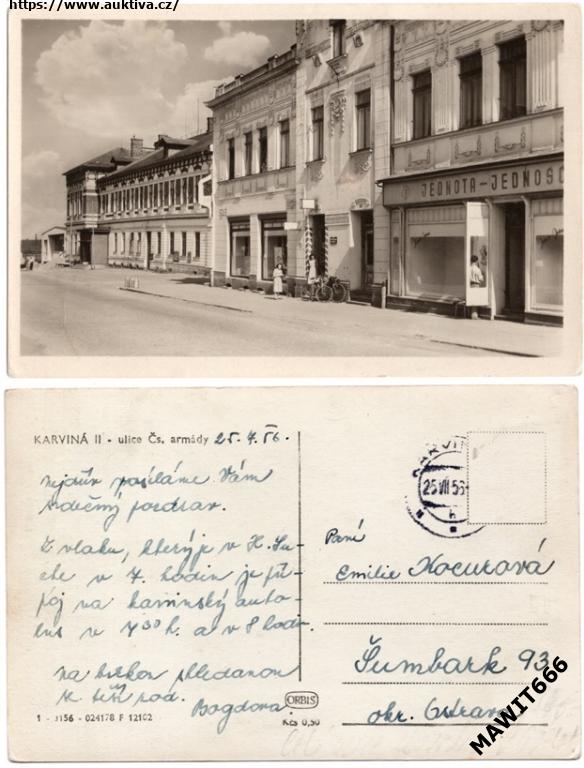 https://www.auktiva.cz/
JEDNOTA-JEDNOSC
KARVINÁ II - ulice Čs. armády 25.7.56.
Nejdřív posíláme Vám
srdečný pozdrav.
Z vlaku, který je v H. Su-
ché v 7. hodin je pří-
poj na karvinský auto-
bus v 7 30 h. a v 8 hodi.
na
se těší rod.
Bogdova
ORBIS
Kčs 0,50
1 - 1156 - 024178 F 12102
KARVIN
25.VII.56
h
Paní
Emilie Kocurová
Šumbark 93
okr. Ostrava
MAWIT666